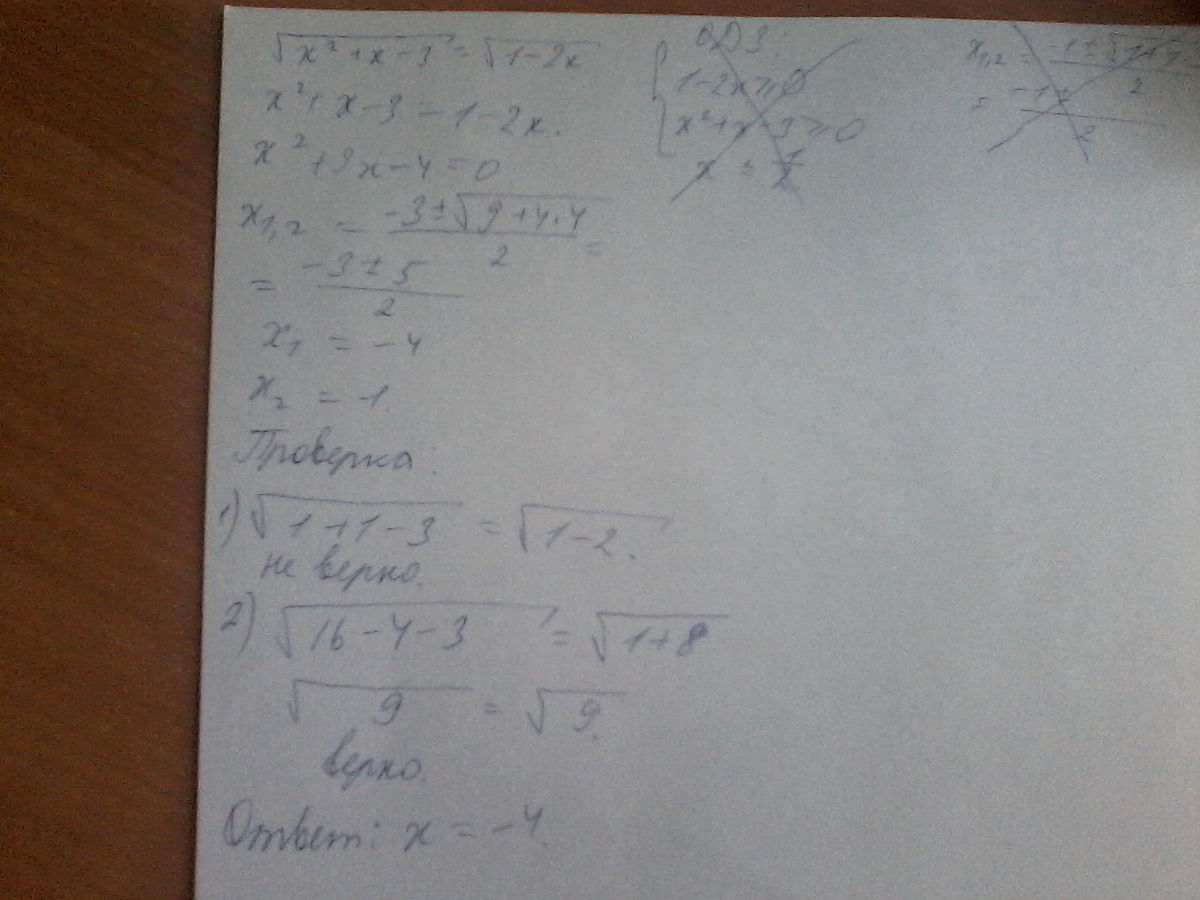 √(x² + x - 3) = √(1 - 2x)
x² + x - 3 = 1 - 2x.
x² + 3x - 4 = 0
x₁,₂ = (-3 ± √(9 + 4·4))/2 =
= (-3 ± 5)/2
x₁ = -4
x₂ = -1.
Проверка:
1) √(1 + 1 - 3) = √(1 - 2).
не верно.
2) √(16 - 4 - 3) = √(1 + 8)
√9 = √9.
верно.
Ответ: x = -4.
ОДЗ:
1 - 2x ≥ 0
x² + x - 3 ≥ 0
x₁,₂ =